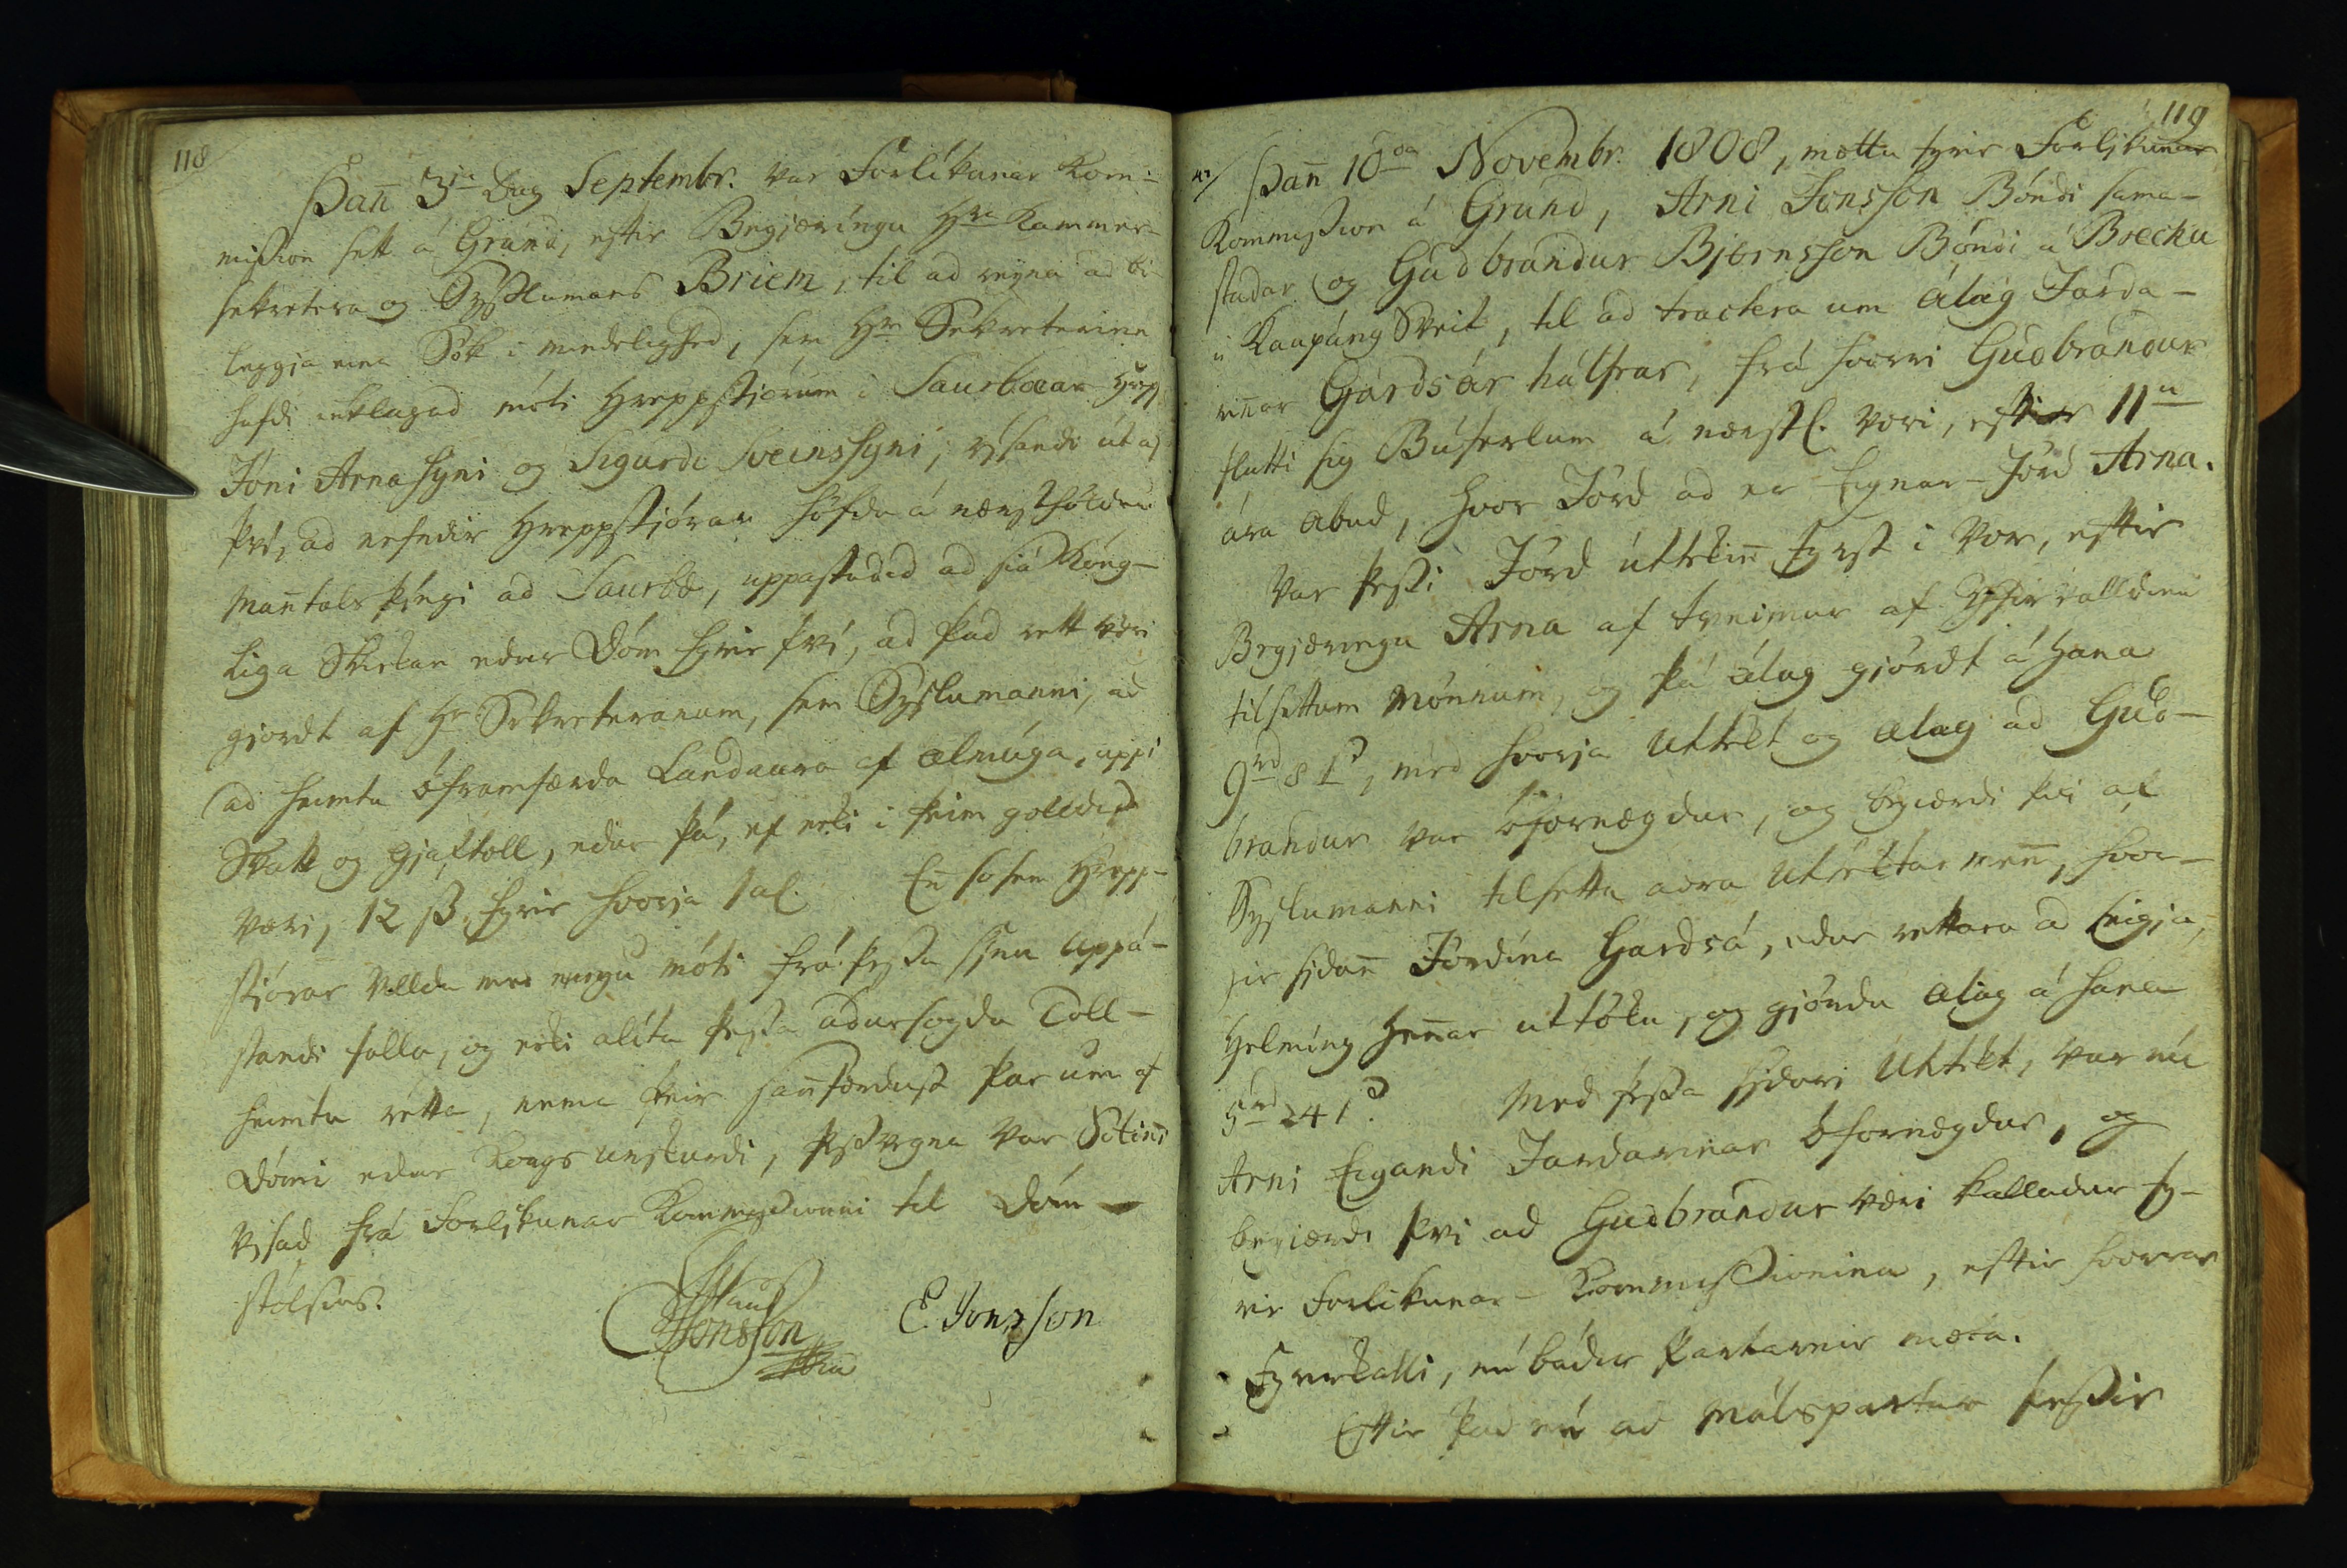 118
Þan̄ 3ja Dag Septembr. var Forlíkunar Kom-
mission sett á Grund, eftir Begjæringu Hra Kammer-
sekretera og Sysslumans Briem, til ad reyna ad bi-
leggja eina Sök i mindelighed, sem Hr Sekreterinn
hafdi innklagad móti Hreppstjórum i Saurbæar Hrepp
Jóni Arnasyni og Sigurdi Sveinssyni, rísandi út af
því, ad nefndir Hreppstjórar höfdu á næstholdnu
Man̄tals þíngi ad Saurbæ, uppástadid ad siá Kóng-
liga Skikan edur Dóm fyrir því, ad þad rett væri
gjördt af Hr Sekreteranum, sem Syslumanni, ad
ad heimta óframfærda Landaura af almúga, uppi
Skatt og Gjaftoll, edur þá, ef ecki i þeim golldid
væri, 12 ß fyrir hvörja 1 al. En̄ so sem Hrepp-
stjórar villdu med eingu móti frá þessu sínu uppá-
standi falla, og ecki alíta þessa adursögdu Toll-
heimtu rétta, nema þeir san̄færdust þar um af
Dómi edur Kongs urskurdi, þessvegna var Sökin̄i
vísad frá Forlíkunar Kommissionni til Dóm-
stólsins.
Jonsson E. Jonsson
119
Þan̄ 10da Novembr. 1808, mættu fyrir Forlíkunar
Kommission á Grund, Arni Jonsson Bóndi sama-
stadar og Gudbrandur Bjornsson Bóndi á Brecku
i Kaupáng Sveit, til ad tractera um álag Jarda-
rin̄ar Gardsár hálfrar, frá hvörri Gudbrandur
flutti sig Búferlum á næstl. vori, eftir 11u
ára abud, hvör Jörd ad er Eignar-Jörd Arna.
Var þessi Jörd úttekin̄ fyrst i vor, eftir
Begjæringu Arna af tveimur af Yfirvalldinu
tilsettum Mönnum, og þá álag gjördt á hana
9rd 81 s, med hvörja Úttekt og álag ad Gud-
brandur var óforn̄ægdur, og begiærdi þvi af
Syslumanni tilsetta adra Utektar menn, hvör-
jir sídan̄ Jördina Gardsá, edur rettara ad seigja,
Helmíng hen̄ar uttóku, og gjördu álag á hana
5rd 24 1 s. Med þessa sídari Uttekt, var nú
Arni Eigandi Jardarinnar óforn̄ægdur, og
begiærdi þvi ad Gudbrandur væri kalladur fy-
rir Forlikunar-Kommissionina, eftir hvörrar
Fyrirkalli, nú bádir Partarnir mæta.
Eftir þad nú ad Málspartar þessir